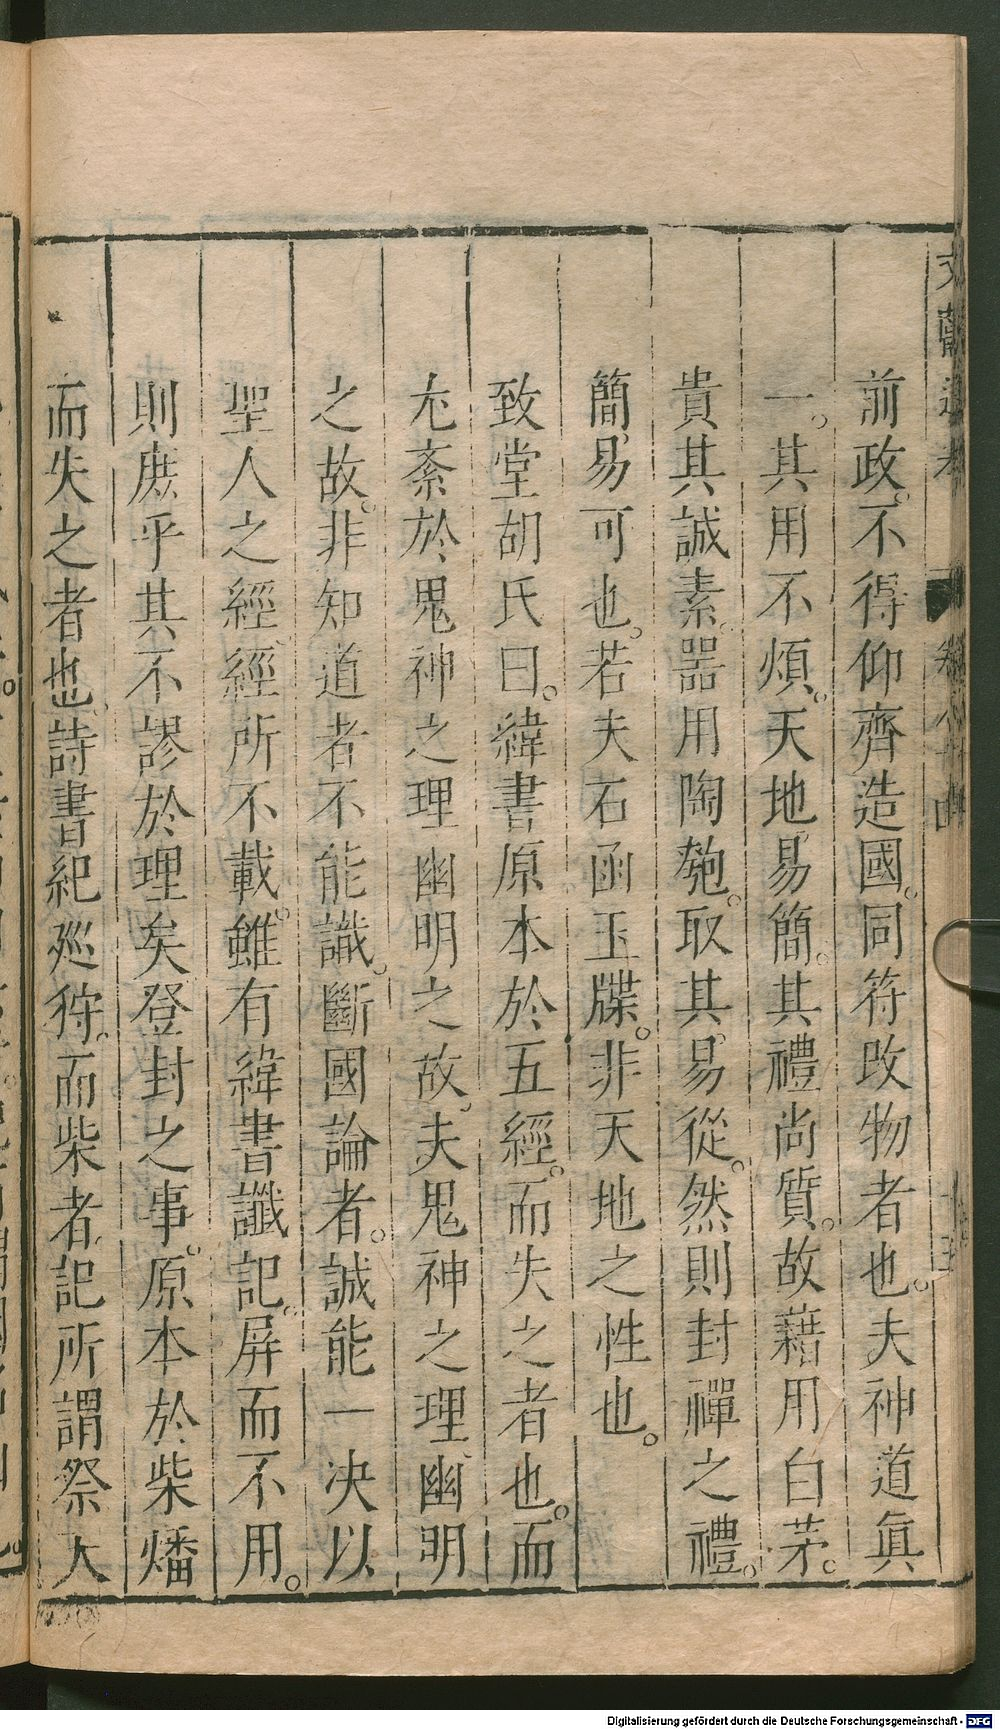 前政。不得仰齊造國。同符改物者也。夫神道眞
一。其用不煩。天地易簡。其禮尚質。故藉用白茅。
貴其誠素。器用陶匏。取其易從。然則封禪之禮。
簡易可也。若夫石函玉牒。非天地之性也。
致堂胡氏曰。緯書原本於五經。而失之者也。而
尤紊於鬼神之理幽明之故。夫鬼神之理。幽明
之故。非知道者不能識。斷國論者。誠能一決以
聖人之經。經所不載。雖有緯書讖記。屏而不用。
則庶乎其不謬於理矣登封之事。原本於柴燔
而失之者也。詩書紀廵狩。而柴者。記所謂祭天
文獻通考
卷八十四
Digitalisierung gefördert durch die Deutsche Forschungsgemeinschaft - DFG